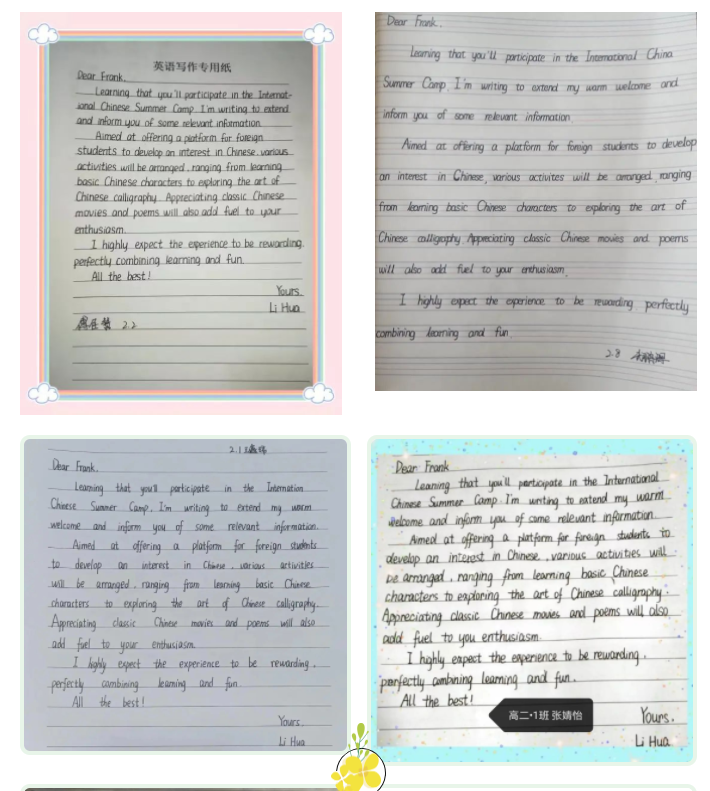 英语写作专用纸
Dear Frank,
Learning that you'll participate in the Internat-
ional Chinese Summer Camp. I'm writing to extend
and inform you of some relevant information.
Aimed at offering a platform for foreign
students to develop an interest in Chinese, various
activities will be arranged, ranging from learning
basic Chinese characters to exploring the art of
Chinese calligraphy. Appreciating classic Chinese
movies and poems will also add fuel to your
enthusiasm.
I highly expect the experience to be rewarding.
perfectly combining learning and fun.
All the best!
Yours,
Li Hua
2.2
Dear Frank,
Learning that you'll participate in the International China
Summer Camp, I'm writing to extend my warm welcome and
inform you of some relevant information.
Aimed at offering a platform for foreign students to develop
an interest in Chinese, various activites will be arranged, ranging
from learning basic Chinese characters to exploring the art of
Chinese calligraphy. Appreciating classic Chinese movies and poems
will also add fuel to your enthusiasm.
I highly expect the experience to be rewarding perfectly
combining learning and fun.
2.8
2.1
Dear Frank,
Learning that you'll participate in the Internation
Chinese Summer Camp, I'm writing to extend my warm
welcome and inform you of some relevant information.
Aimed at offering a platform for foreign students
to develop an interest in Chinese, various activities
will be arranged, ranging from learning basic Chinese
characters to exploring the art of Chinese calligraphy.
Appreciating classic Chinese movies and poems will also
add fuel to your enthusiasm.
I highly expect the experience to be rewarding,
perfectly combining learning and fun.
All the best!
Yours,
Li Hua
Dear Frank
Learning that you'll participate in the International
Chinese Summer Camp. I'm writing to extend my warm
welcome and inform you of some relevant information
Aimed at offering a platform for foreign students to
develop an interest in Chinese, various activities will
be arranged, ranging from learning basic Chinese
characters to exploring the art of Chinese calligraphy.
Appreciating classic Chinese movies and poems will also
add fuel to you enthusiasm.
I highly expect the experience to be rewarding,
perfectly combining learning and fun.
All the best!
高二·1班 张婧怡
Yours,
Li Hua